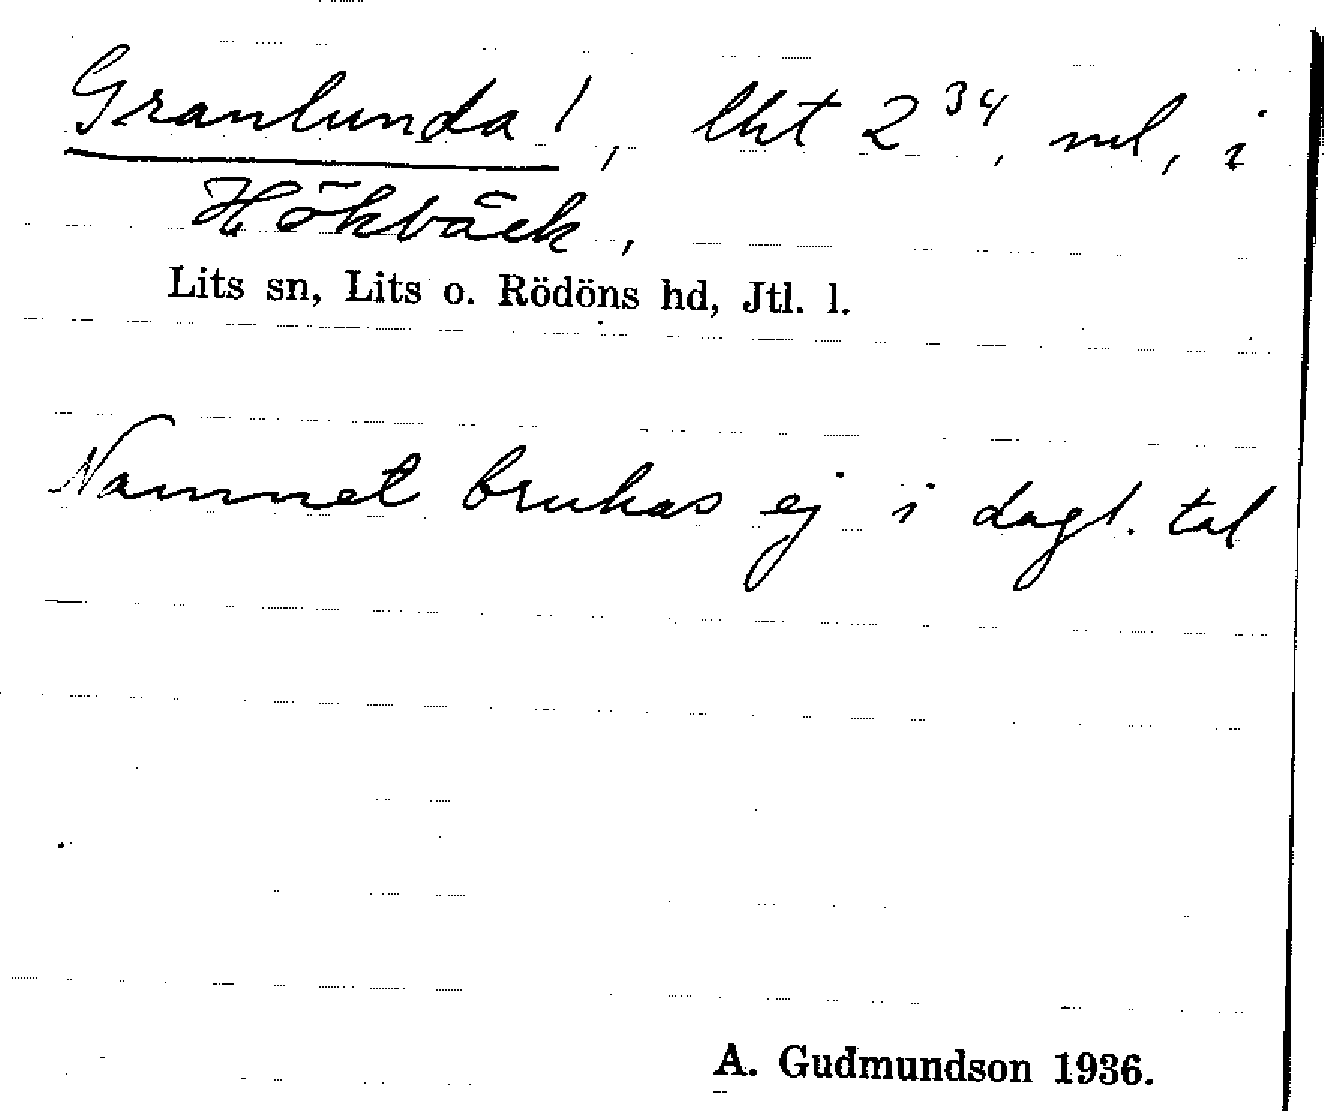 Granlunda!, lht 2³⁴, nel, i
Hökbäck,
Lits sn, Lits o. Rödöns hd, Jtl. l.
Namnet brukas ej i dagl. tal
A. Gudmundson 1936.